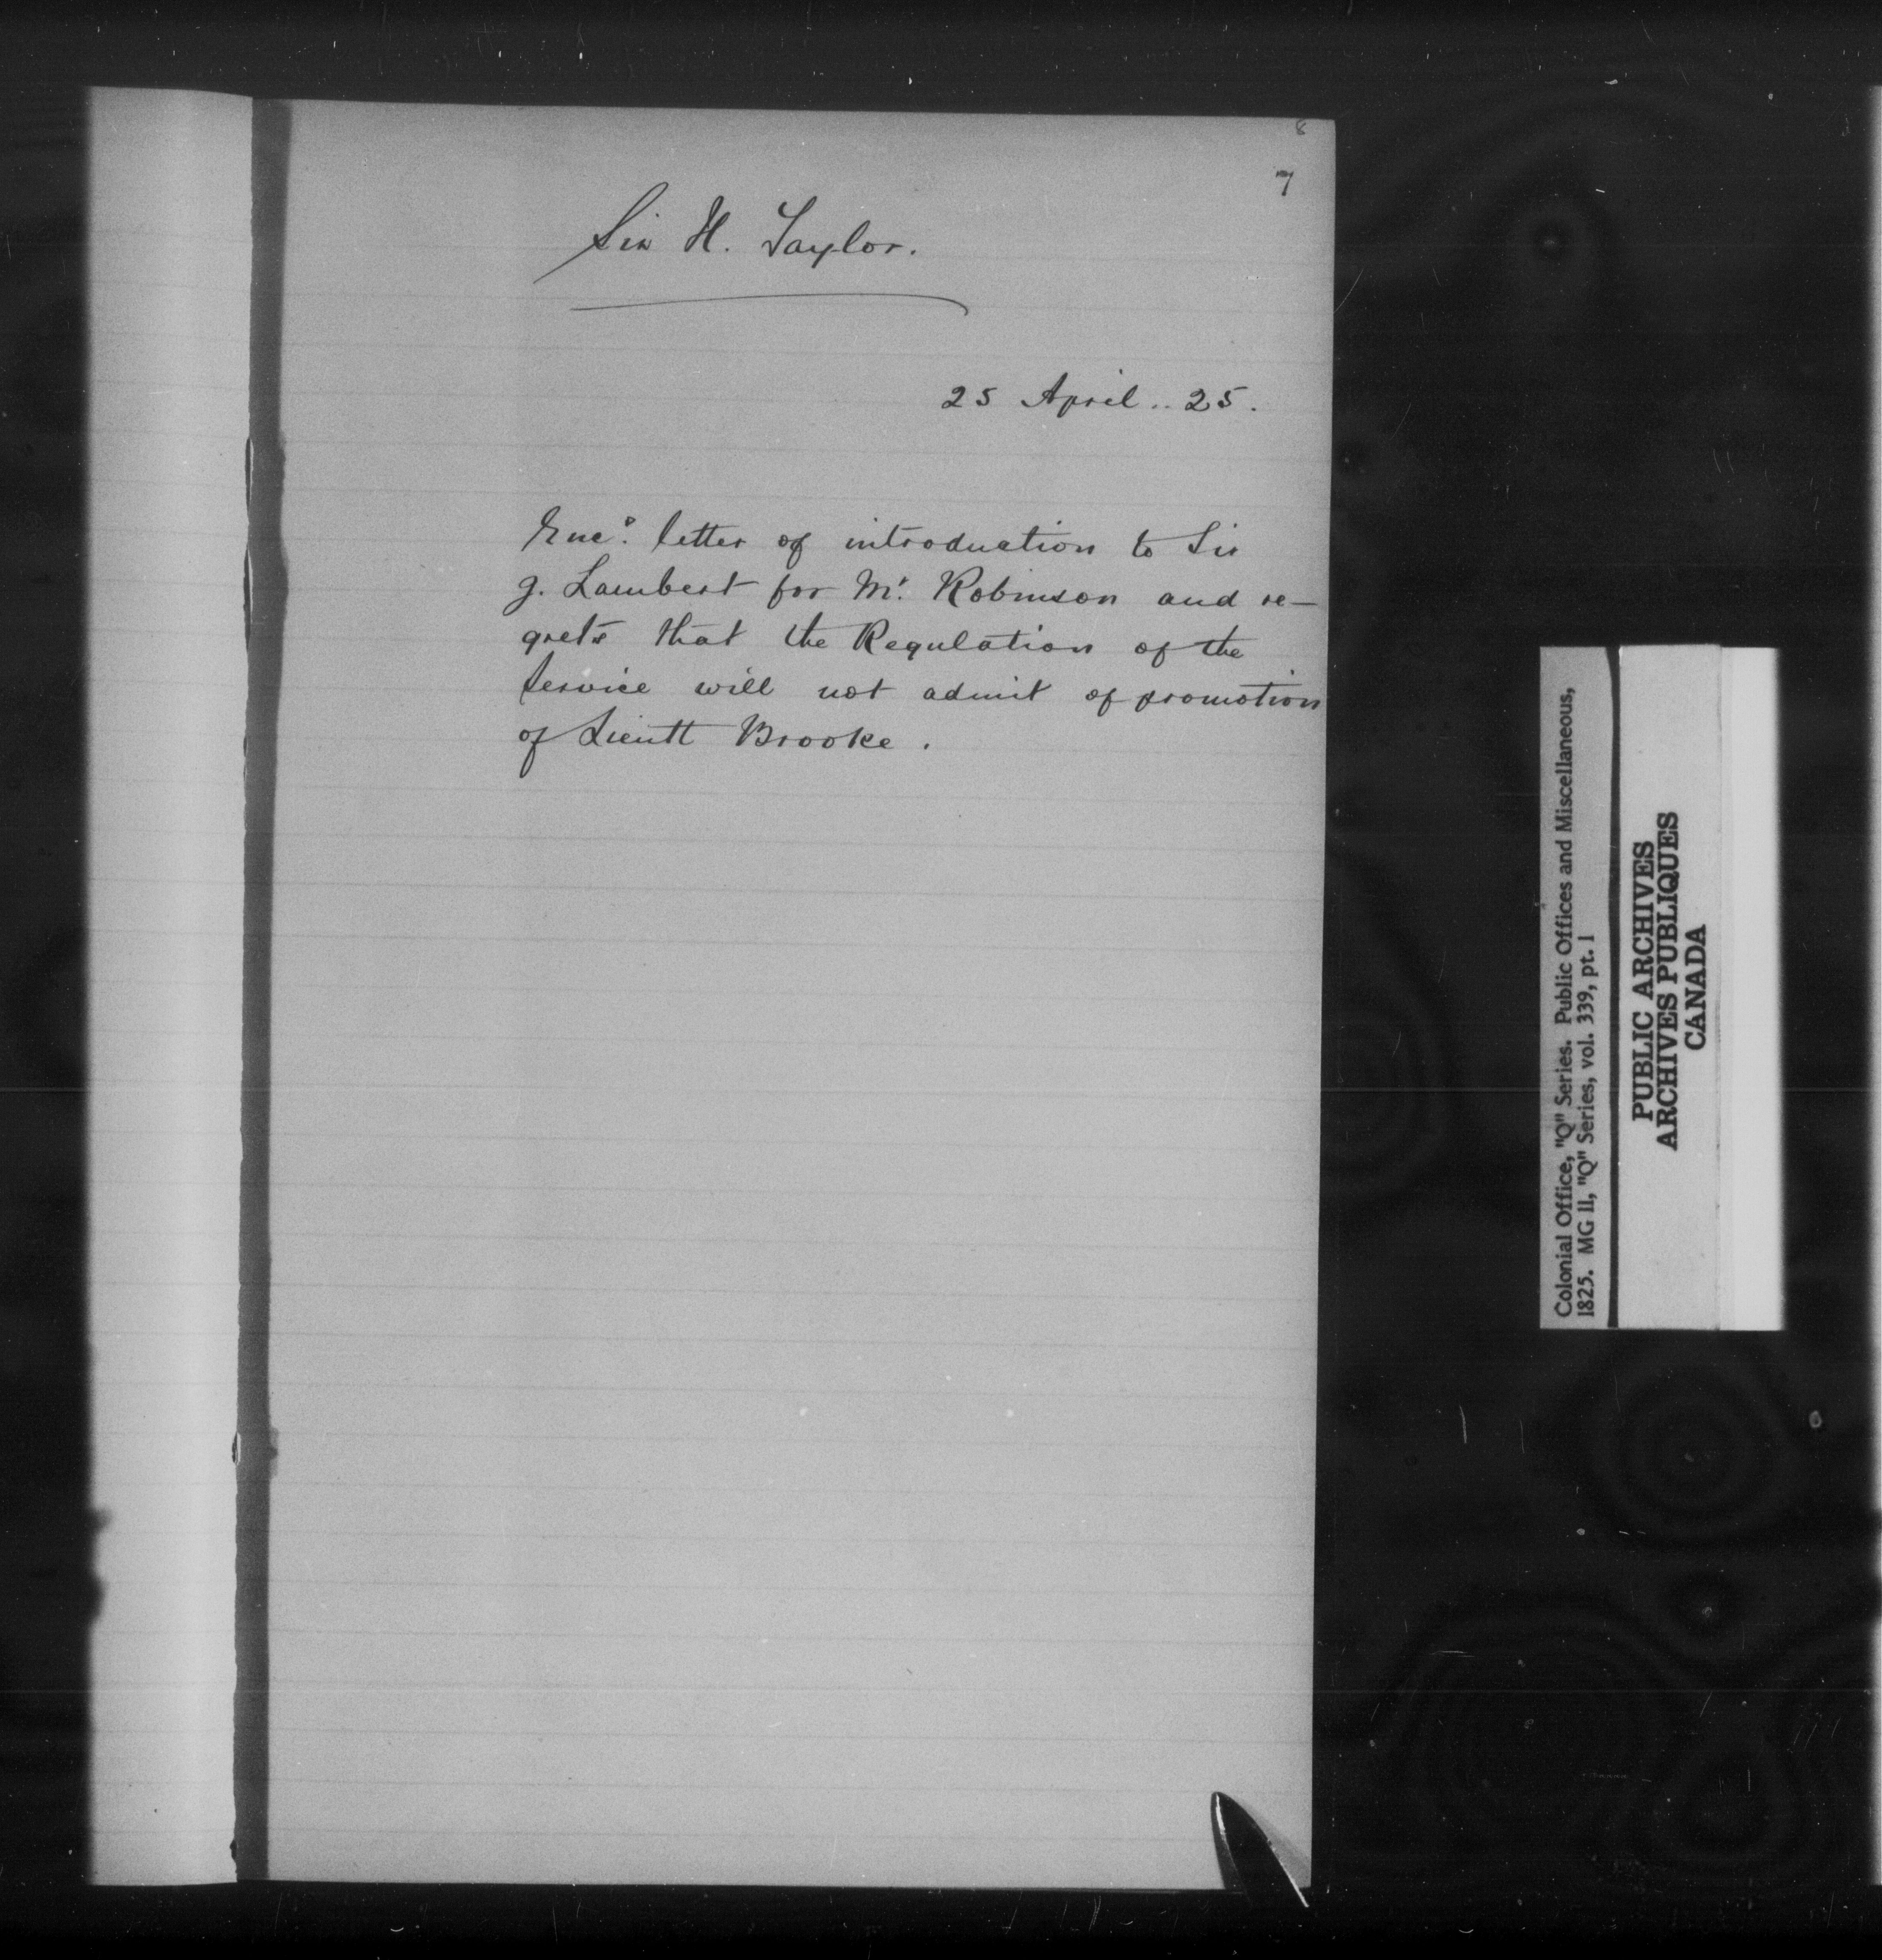 8
7
Sir H. Taylor.
25 April .. 25.
Encᵒ. letter of introduction to Sir
J. Lambert for Mʳ. Robinson and re-
grets that the Regulation of the
Service will not admit of promotion
of Lieutt Brooke.
Colonial Office, "Q" Series. Public Offices and Miscellaneous,
1825. MG 11, "Q" Series, vol. 339, pt. 1
PUBLIC ARCHIVES
ARCHIVES PUBLIQUES
CANADA